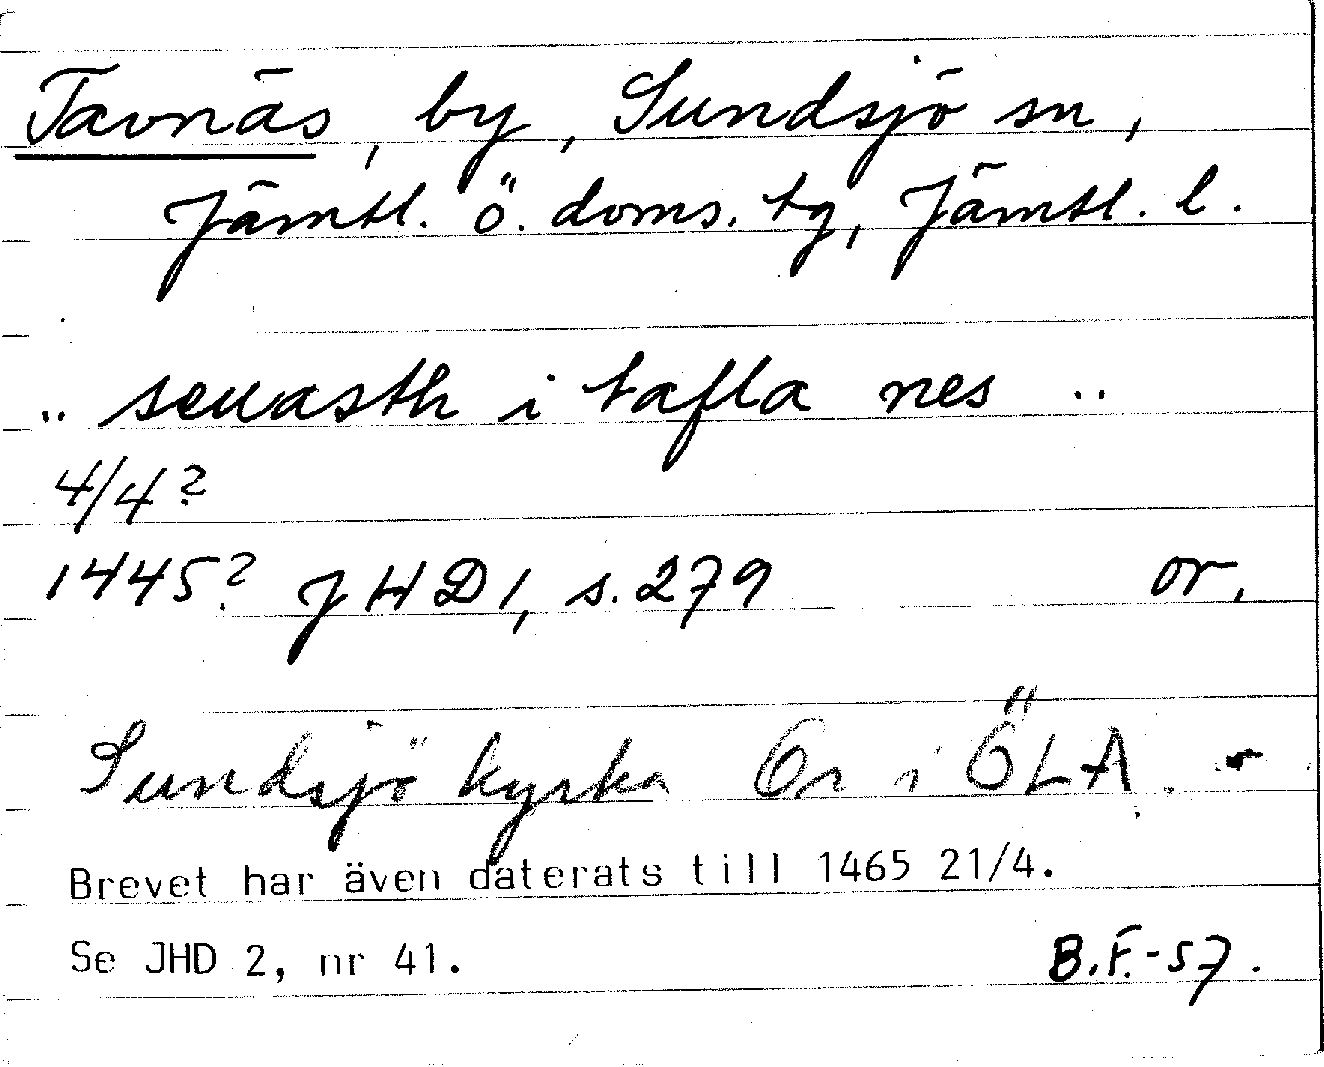 Tavnäs, by, Sundsjö sn,
Jämtl. ö. doms. tg, Jämtl. l.
.. seuasth i tafla nes ..
4/4?
1445? JHD 1, s. 279 or.
Sundsjö kyrka Or i ÖLA.
Brevet har även daterats till 1465 21/4.
Se JHD 2, nr 41. B.F.-57.